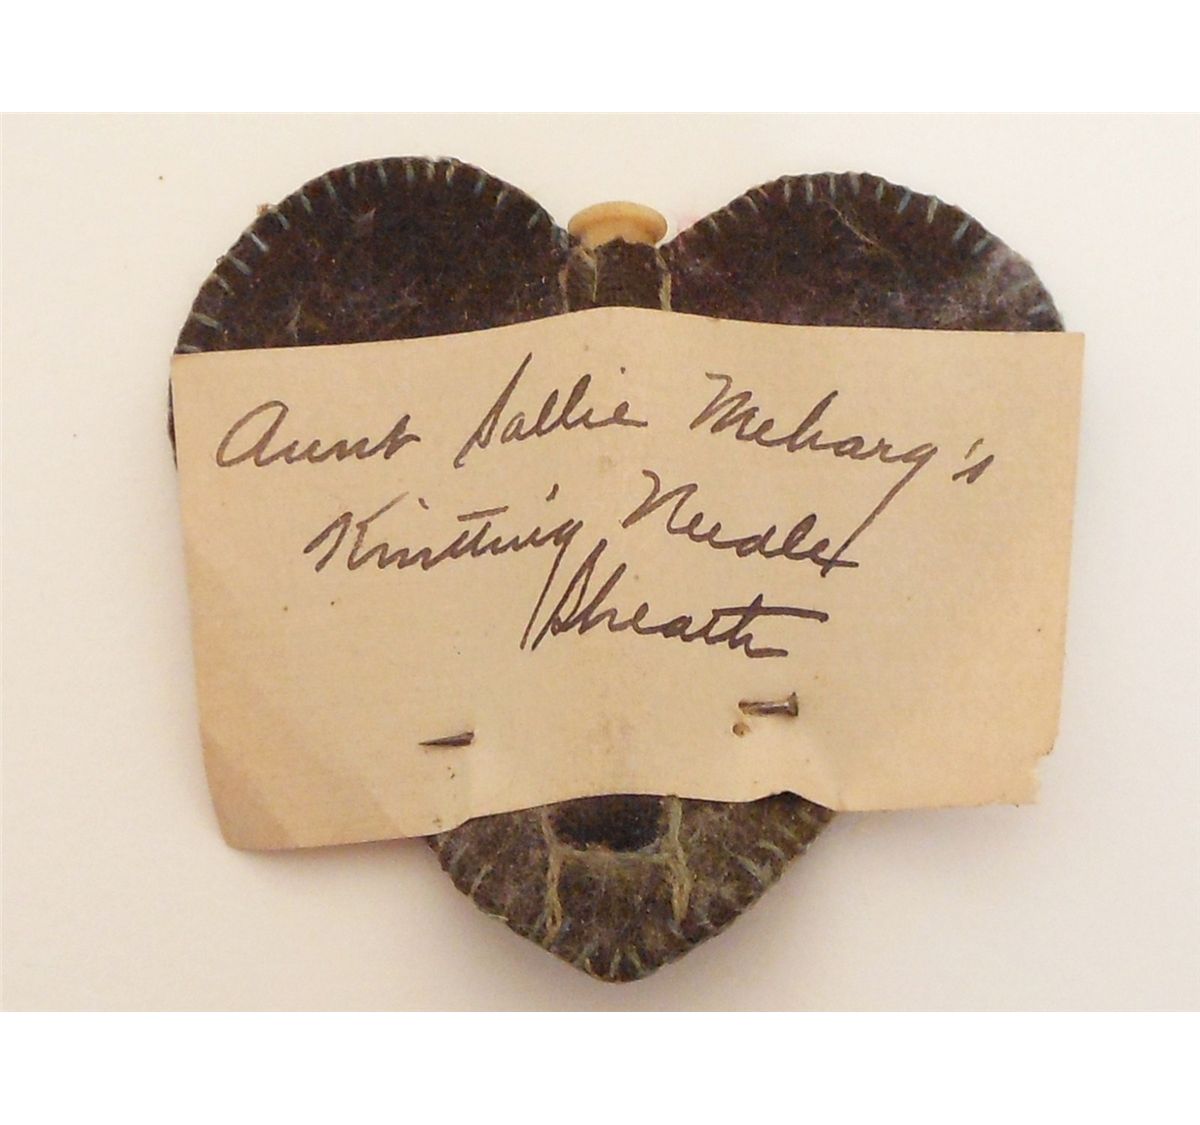 Aunt Sallie Meharg's
Knitting Needle
Sheath